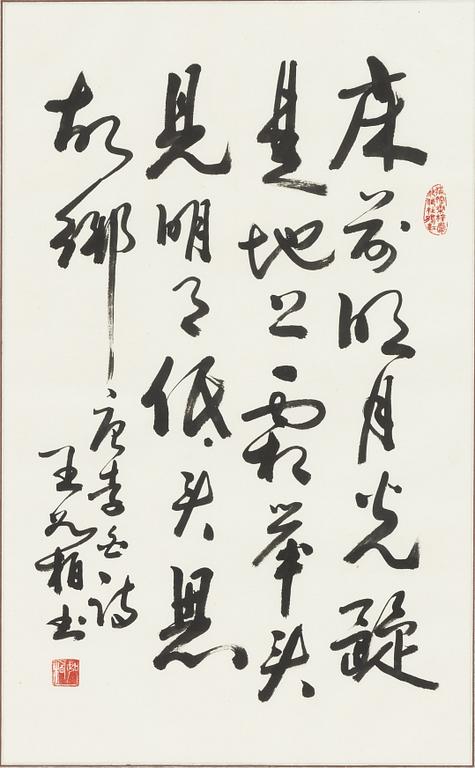 床前明月光疑
是地上霜举头
見明月低头思
故鄉
唐李白诗
王 柏书